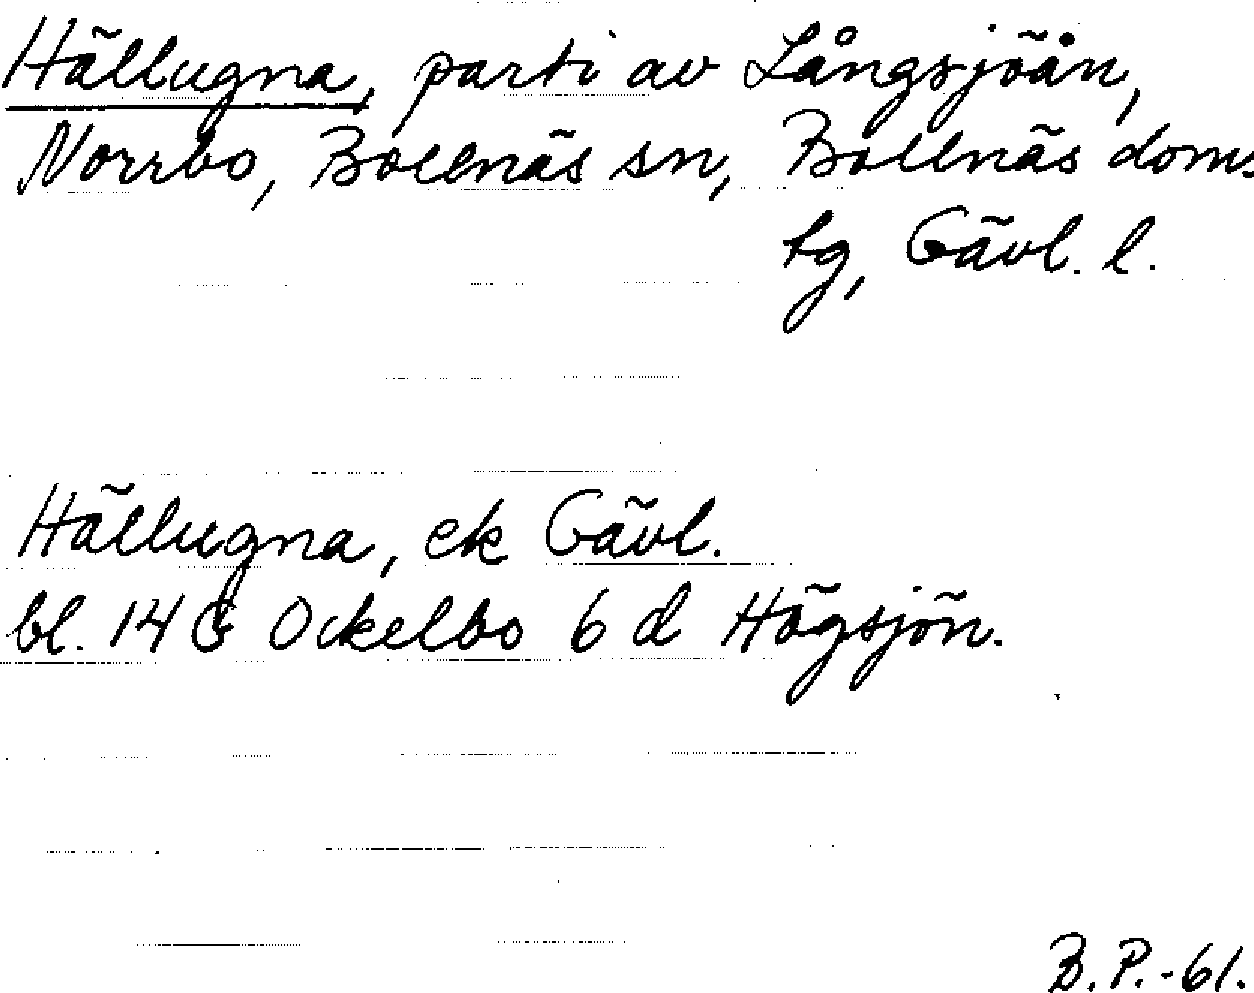 Hällugna, parti av Långsjöån,
Norrbo, Bollnäs sn, Bollnäs doms.
tg, Gävl. l.
Hällugna, ek Gävl.
bl. 14 G Ockelbo 6 d Högsjön.
B.P.-61.